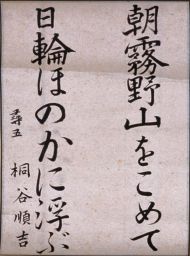 朝霧野山をこめて
日輪ほのかに浮ぶ
尋五
桐谷順吉